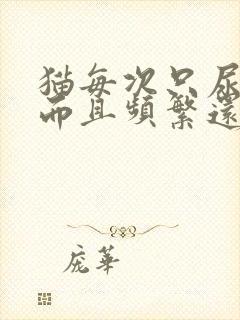 猫每次只尿
而且频繁还
庞华